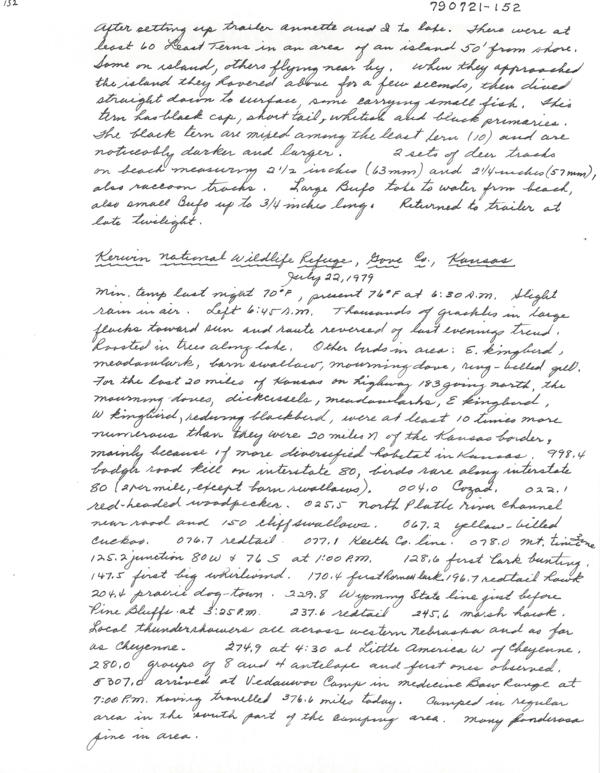 132
790721-152
After setting up trailer Annette and I to lake. There were at
least 60 Least Terns in an area of an island 50' from shore.
Some on island, others flying near by. When they approached
the island they hovered above for a few seconds, then dived
straight down to surface, some carrying small fish. This
tern has black cap, short tail, whitish and black primaries.
The black tern are mixed among the least tern (10) and are
noticeably darker and larger. 2 sets of deer tracks
on beach measuring 2 1/2 inches (63mm) and 2 1/4 inches (57mm),
also raccoon tracks. Large Bufo take to water from beach,
also small Bufo up to 3/4 inches long. Returned to trailer at
late twilight.
Kerwin National Wildlife Refuge, Gove Co., Kansas
July 22, 1979
Min. temp last night 70°F, present 76°F at 6:30 A.M. Slight
rain in air. Left 6:45 A.M. Thousands of grackles in large
flocks toward sun and route reversed of last evenings trend.
Roosted in trees along lake. Other birds in area: E. kingbird,
meadowlark, barn swallow, mourning dove, ring-billed gull.
For the last 20 miles of Kansas on highway 183 going north, the
mourning doves, dickcissels, meadowlarks, E kingbird,
W kingbird, redwing blackbird, were at least 10 times more
numerous than they were 20 miles N of the Kansas border,
mainly because of more diversified habitat in Kansas. 998.4
badger road kill on interstate 80, birds rare along interstate
80 (2 per mile, except barn swallows). 004.0 Cozad. 022.1
red-headed woodpecker. 025.5 North Platte River channel
near road and 150 cliff swallows. 067.2 yellow-billed
cuckoo. 076.7 redtail. 077.1 Keith Co. line. 078.0 Mt. time zone
125.2 junction 80W & 76 S at 1:00 P.M. 128.6 first lark bunting.
147.5 first big whirlwind. 170.4 first horned lark. 196.7 redtail hawk
204.4 prairie dog-town. 229.8 Wyoming State line just before
Pine Bluffs at 3:25 P.M. 237.6 redtail 245.6 marsh hawk.
Local thundershowers all across western Nebraska and as far
as Cheyenne. 274.9 at 4:30 at Little America W of Cheyenne.
280.0 groups of 8 and 4 antelope and first ones observed.
5307.0 arrived at Vedauwoo Camp in medicine Bow Range at
7:00 P.M. having travelled 376.6 miles today. Camped in regular
area in the south part of the camping area. Many ponderosa
pine in area.